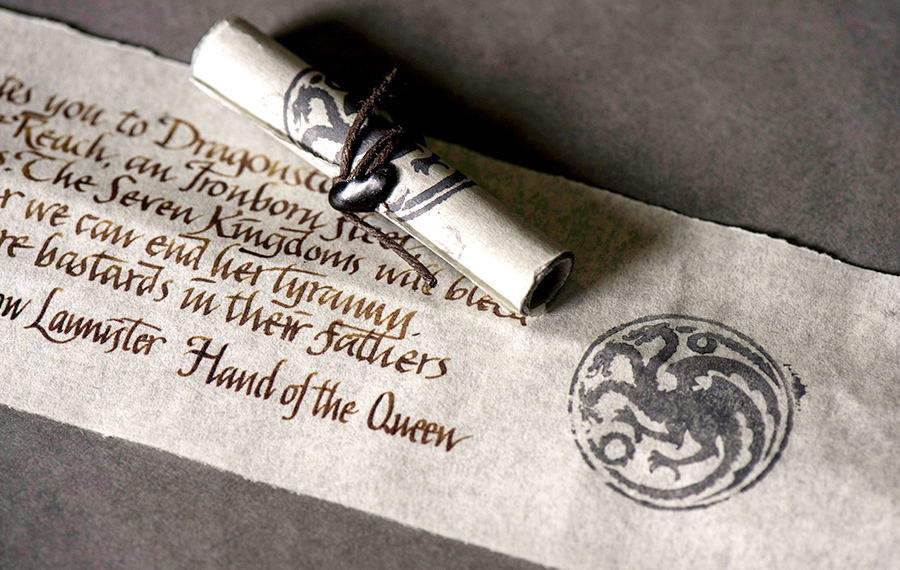 you to
Reach, an Ironborn
The Seven Kingdoms will
we can end her tyranny.
bastards in their fathers
Lannister Hand of the Queen